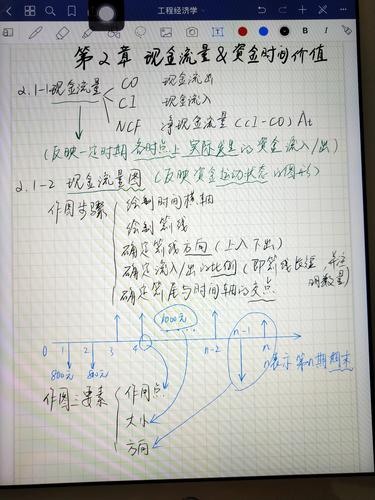 工程经济学
第2章 现金流量&资金时间价值
2.1-1 现金流量
CO 现金流出
CI 现金流入
NCF 净现金流量 (CI-CO) At
(反映一定时期各时点上实际发生的资金流入/出)
2.1-2 现金流量图 (反映资金运动状态的图形)
作图步骤
绘制时间横轴
绘制箭线
确定箭线方向 (上入下出)
确定流入/出的比例 (即箭线长短 并注明数量)
确定箭尾与时间轴的交点
1000元
0 1 2 3 4 n-2 n-1 n
800元 800元
n表示第n期期末
作图三要素
作用点
大小
方向